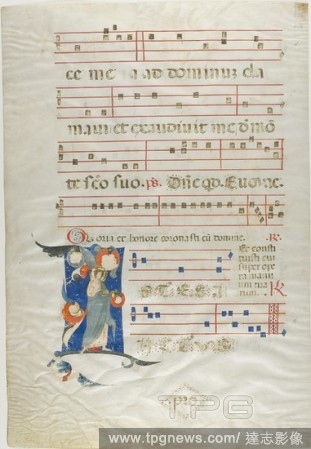 ce me a ad dominum cla
mavi et exaudivit me de mō
te sc̄o suo. ps. Dn̄e qd. Euovae.
Gloria et honore coronasti eū domine. R.
Et consti
tuisti eū
super ope
ra manu
um tua
rum. R
TPG
www.tpgnews.com/ 達志影像